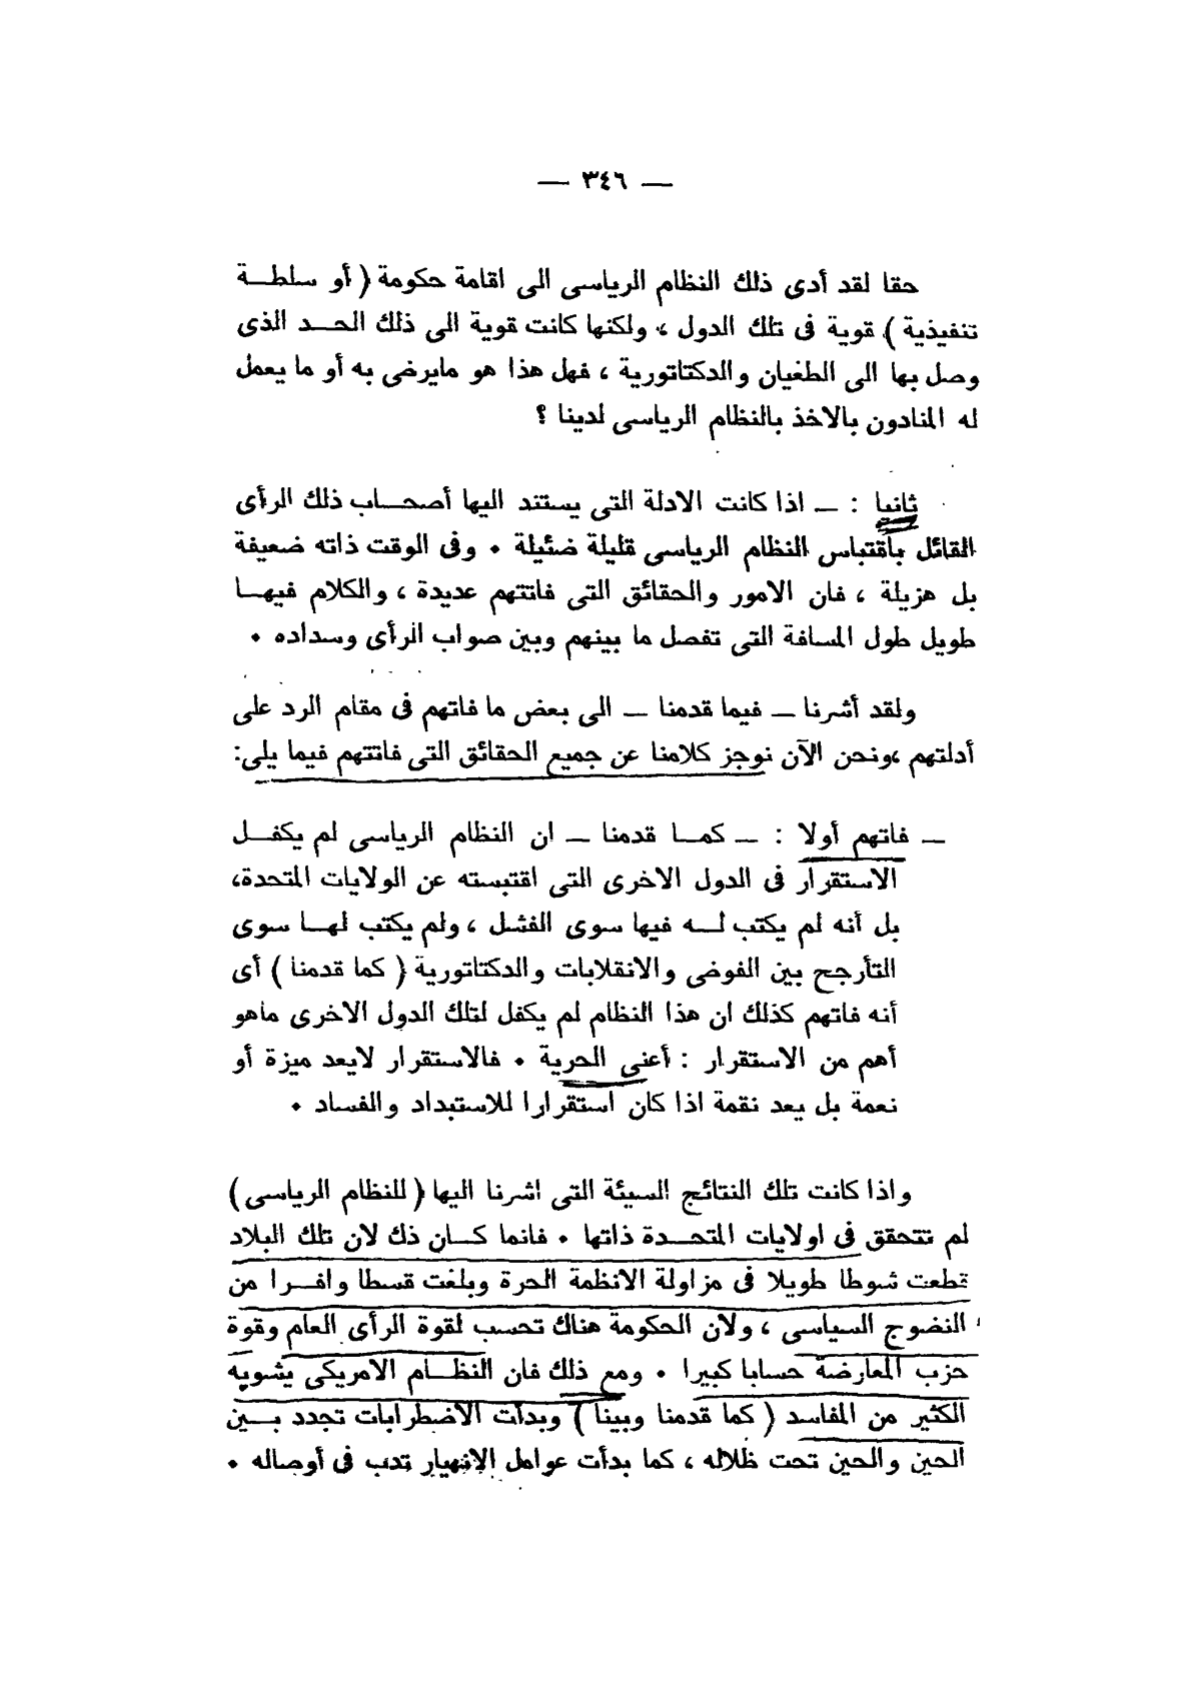 — ٣٤٦ —
حقا لقد أدى ذلك النظام الرياسى الى اقامة حكومة ( أو سلطــة
تنفيذية ) قوية فى تلك الدول ، ولكنها كانت قوية الى ذلك الحــد الذى
وصل بها الى الطغيان والدكتاتورية ، فهل هذا هو مايرضى به أو ما يعمل
له المنادون بالاخذ بالنظام الرياسى لدينا ؟
ثانيا : — اذا كانت الادلة التى يستند اليها أصحــاب ذلك الرأى
القائل بأقتباس النظام الرياسى قليلة ضئيلة • وفى الوقت ذاته ضعيفة
بل هزيلة ، فان الامور والحقائق التى فاتتهم عديدة ، والكلام فيهــا
طويل طول المسافة التى تفصل ما بينهم وبين صواب الرأى وسداده •
ولقد أشرنا — فيما قدمنا — الى بعض ما فاتهم فى مقام الرد على
أدلتهم ،ونحن الآن نوجز كلامنا عن جميع الحقائق التى فاتتهم فيما يلى:
— فاتهم أولا : — كمــا قدمنا — ان النظام الرياسى لم يكفــل
الاستقرار فى الدول الاخرى التى اقتبسته عن الولايات المتحدة،
بل أنه لم يكتب لــه فيها سوى الفشل ، ولم يكتب لهــا سوى
التأرجح بين الفوضى والانقلابات والدكتاتورية ( كما قدمنا ) أى
أنه فاتهم كذلك ان هذا النظام لم يكفل لتلك الدول الاخرى ماهو
أهم من الاستقرار : أعنى الحرية • فالاستقرار لايعد ميزة أو
نعمة بل يعد نقمة اذا كان استقرارا للاستبداد والفساد •
واذا كانت تلك النتائج السيئة التى اشرنا اليها ( للنظام الرياسى )
لم تتحقق فى اولايات المتحــدة ذاتها • فانما كــان ذك لان تلك البلاد
قطعت شوطا طويلا فى مزاولة الانظمة الحرة وبلغت قسطا وافــرا من
النضوج السياسى ، ولان الحكومة هناك تحسب لقوة الرأى العام وقوة
حزب المعارضة حسابا كبيرا • ومع ذلك فان النظــام الامريكى يشوبه
الكثير من المفاسد ( كما قدمنا وبينا ) وبدأت الاضطرابات تجدد بــين
الحين والحين تحت ظلاله ، كما بدأت عوامل الانهيار تدب فى أوصاله •